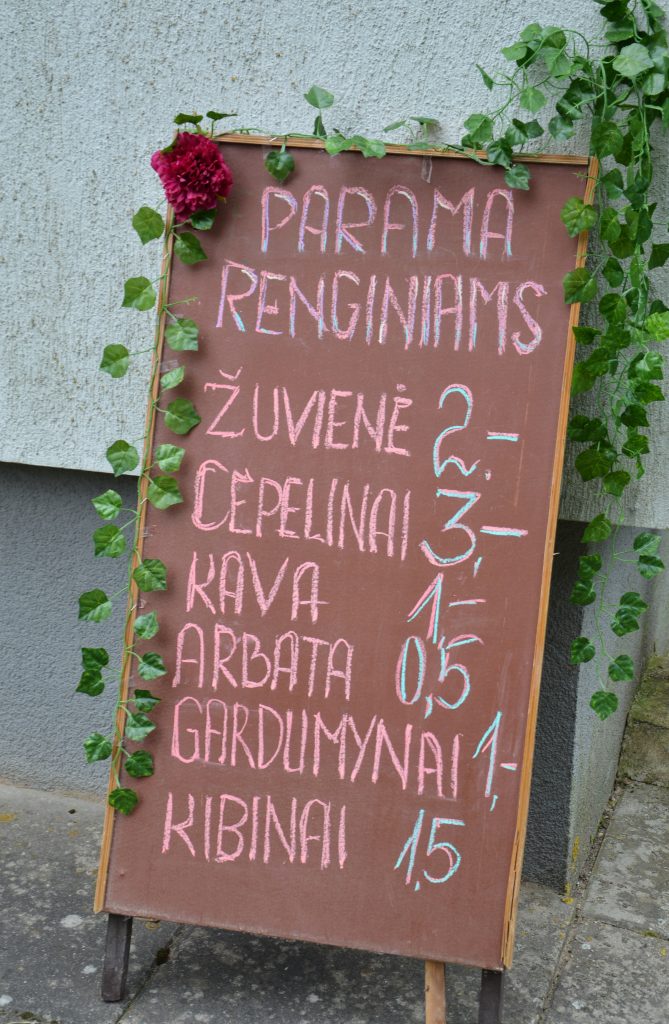 PARAMA
RENGINIAMS
ŽUVIENĖ 2,-
CEPELINAI 3,-
KAVA 1,-
ARBATA 0,5
GARDUMYNAI 1,-
KIBINAI 1,5